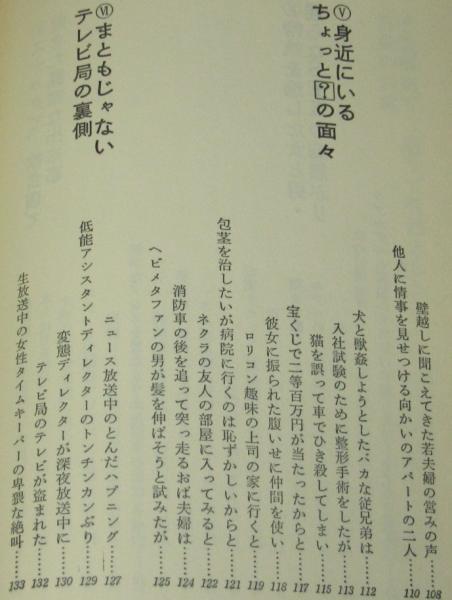 壁越しに聞こえてきた若夫婦の営みの声……108
他人に情事を見せつける向かいのアパートの二人……110
Ⅴ身近にいる
ちょっと?の面々
犬と獣姦しようとしたバカな従兄弟は……112
入社試験のために整形手術をしたが……113
猫を誤って車でひき殺してしまい……115
宝くじで二等百万円が当たったからと……117
彼女に振られた腹いせに仲間を使い……118
ロリコン趣味の上司の家に行くと……119
包茎を治したいが病院に行くのは恥ずかしいからと……121
ネクラの友人の部屋に入ってみると……122
消防車の後を追って突っ走るおば夫婦は……124
ヘビメタファンの男が髪を伸ばそうと試みたが……125
Ⅵまともじゃない
テレビ局の裏側
ニュース放送中のとんだハプニング……127
低能アシスタントディレクターのトンチンカンぶり……129
変態ディレクターが深夜放送中に……130
テレビ局のテレビが盗まれた……132
生放送中の女性タイムキーパーの卑猥な絶叫……133